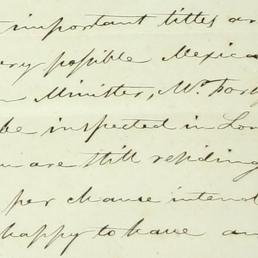 important titles ar
ery possible Mexica
n Minister, Mr. Fors
be inspected in Lon
u are still residing
per chance intend
happy to have an